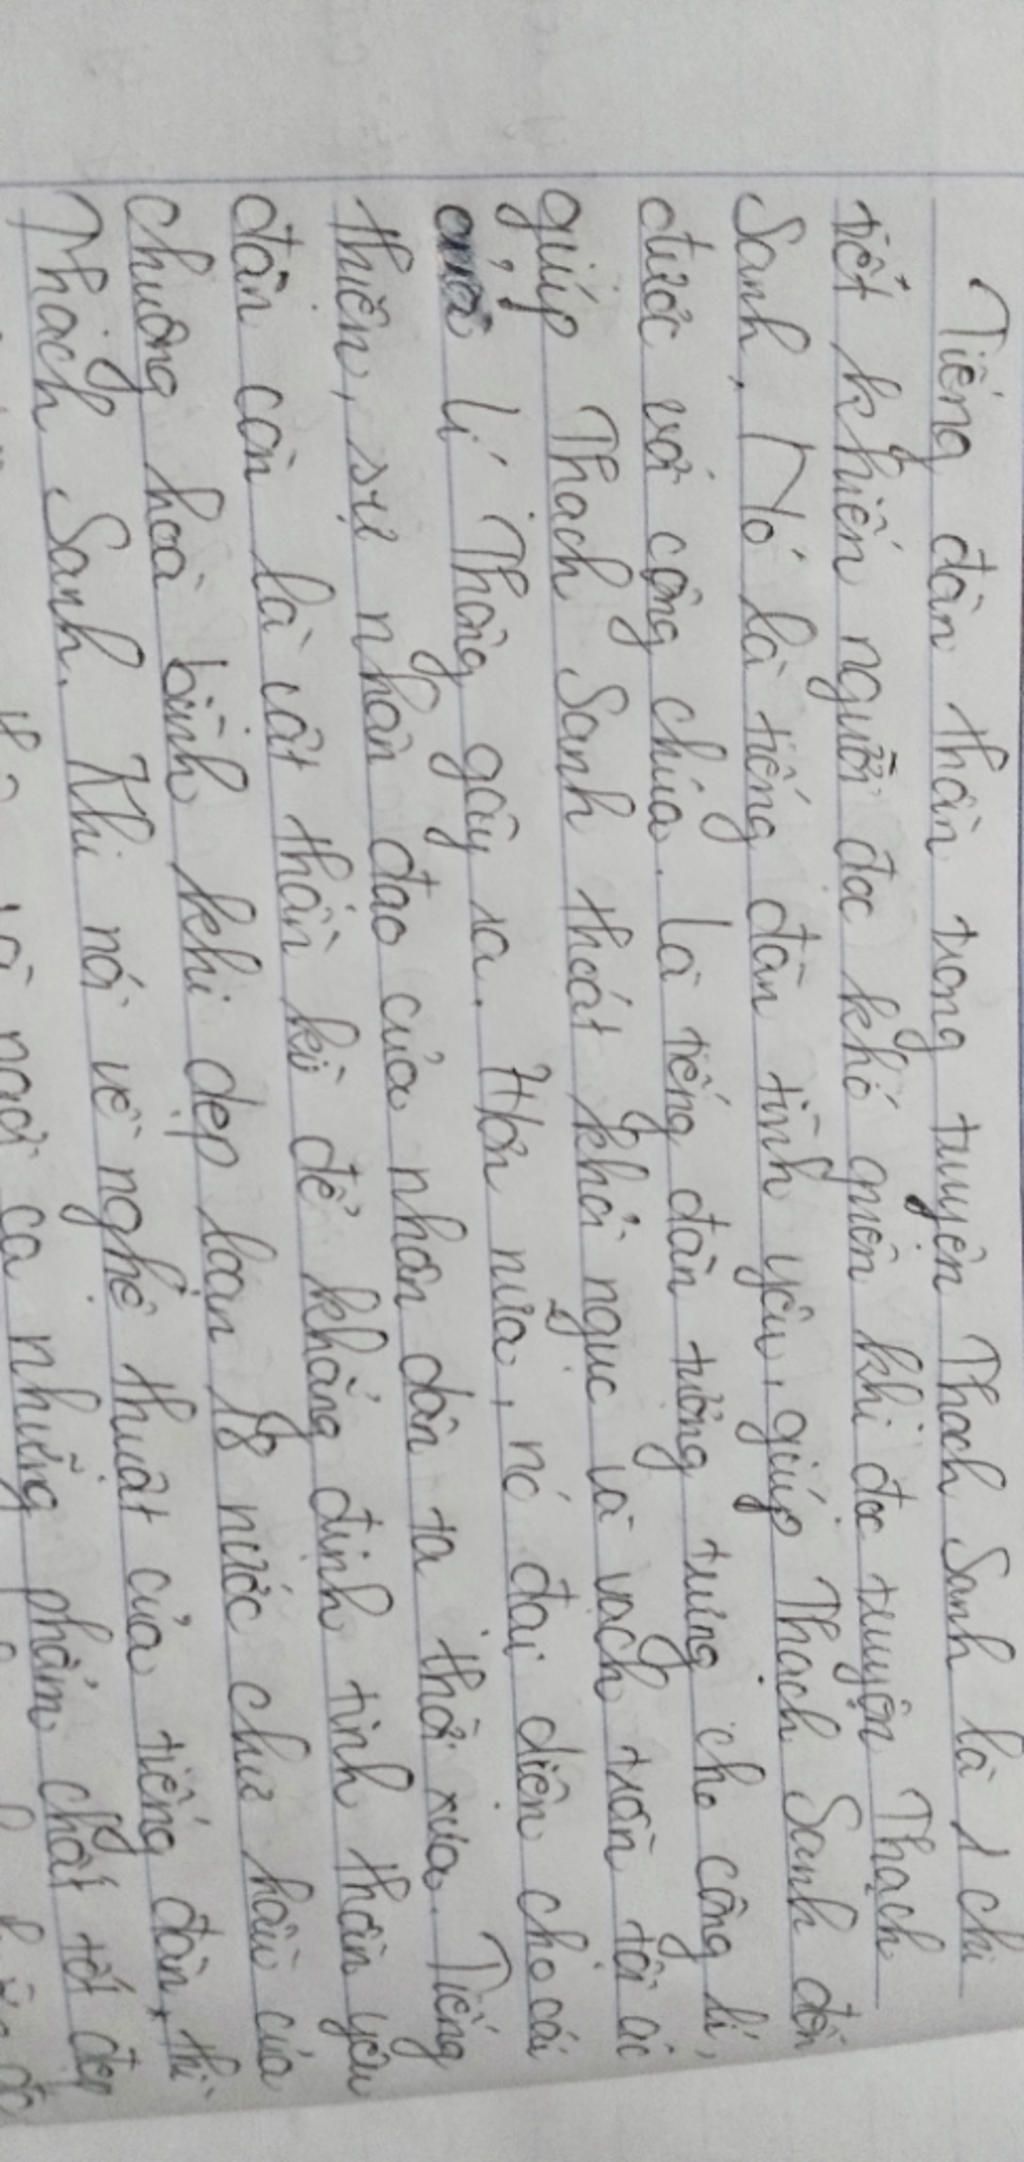 Tiếng đàn thần trong truyện Thạch Sanh là 1 chi
tiết khiến người đọc khó quên khi đọc truyện Thạch
Sanh. Nó là tiếng đàn tình yêu, giúp Thạch Sanh đến
được với công chúa. Là tiếng đàn tượng trưng cho công lí,
giúp Thạch Sanh thoát khỏi ngục và vạch trần tội ác
của Lí Thông gây ra. Hơn nữa, nó đại diện cho cái
thiện, sự nhân đạo của nhân dân ta thời xưa. Tiếng
đàn còn là vật thần kì để khẳng định tinh thần yêu
chuộng hoà bình khi dẹp loạn 18 nước chư hầu của
Thạch Sanh. Khi nói về nghệ thuật của tiếng đàn, thì
ca những phẩm chất tốt đẹp